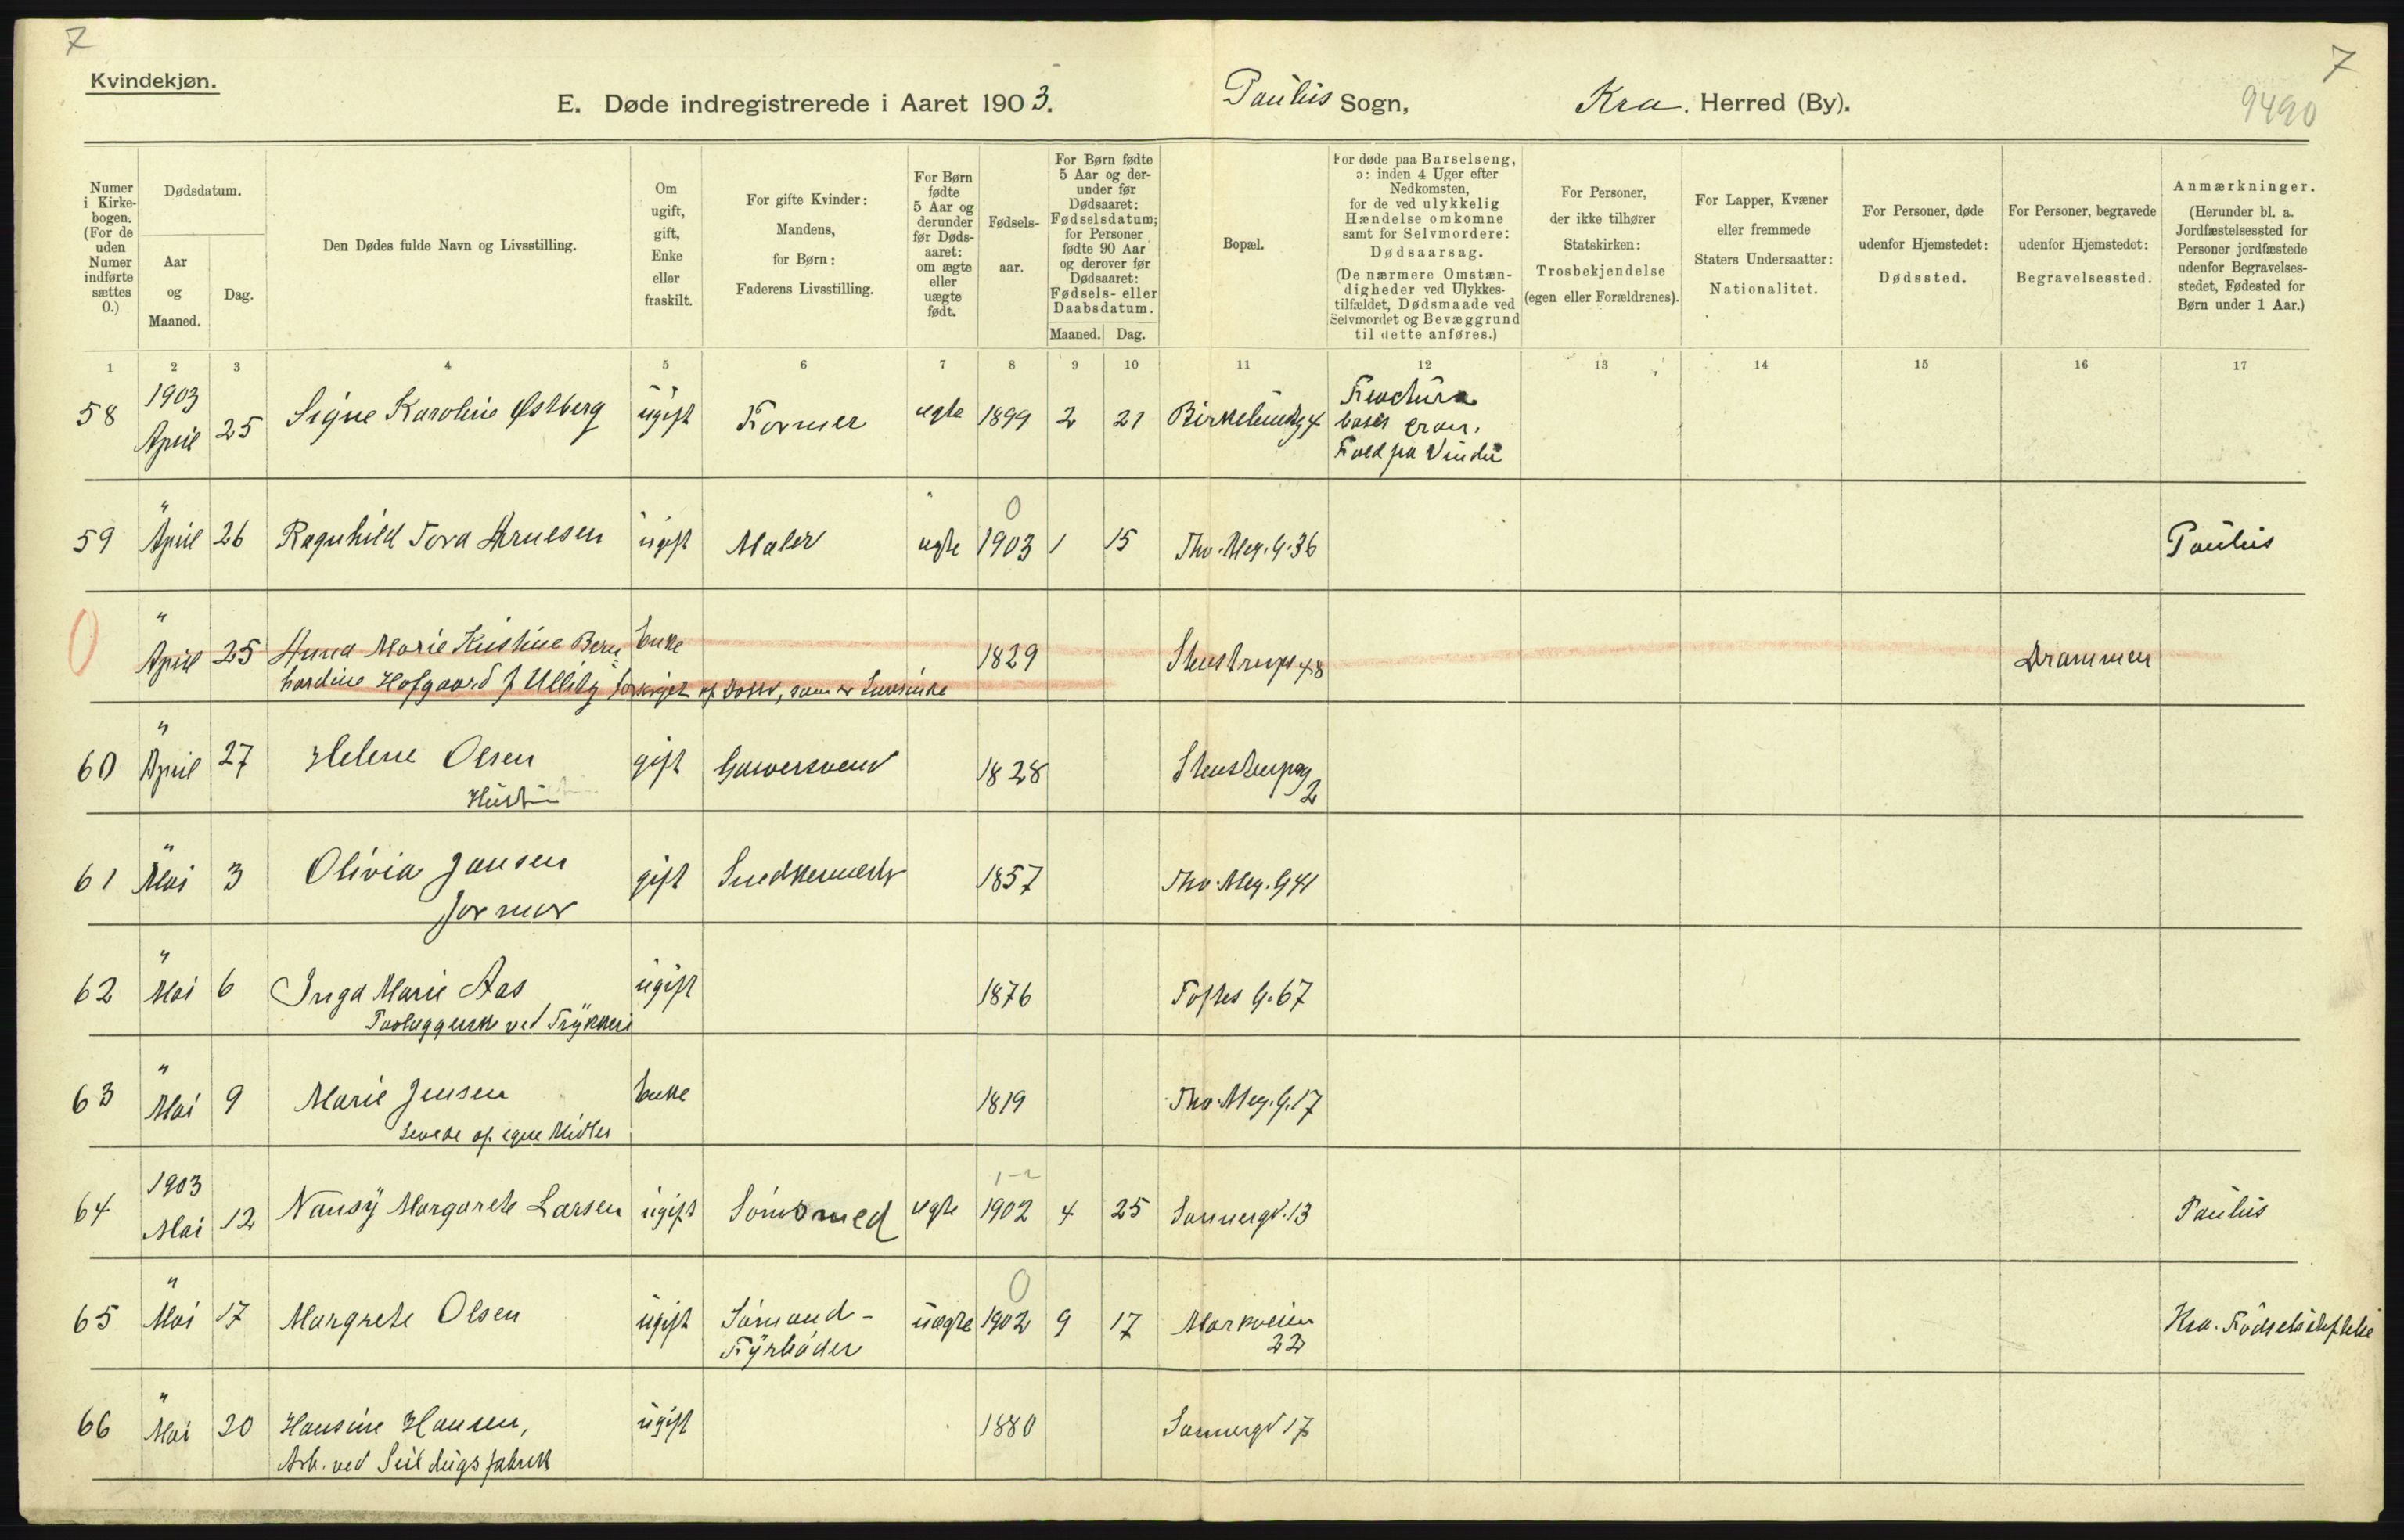 7
7
Kvindekjøn.
E. Døde indregistrerede i Aaret 1903. Paulus Sogn, Kra. Herred (By).
9490
Numer i Kirkebogen. (For de uden Numer indførte sættes 0.)
Dødsdatum.
Aar og Maaned.
Dag.
Den Dødes fulde Navn og Livsstilling.
Om ugift, gift, Enke eller fraskilt.
For gifte Kvinder: Mandens, for Børn: Faderens Livsstilling.
For Børn fødte 5 Aar og derunder før Dødsaaret: om ægte eller uægte født.
Fødselsaar.
For Børn fødte 5 Aar og derunder før Dødsaaret: Fødselsdatum; for Personer fødte 90 Aar og derover før Dødsaaret: Fødsels- eller Daabsdatum.
Maaned. Dag.
Bopæl.
For døde paa Barselseng, ɔ: inden 4 Uger efter Nedkomsten, for de ved ulykkelig Hændelse omkomne samt for Selvmordere: Dødsaarsag. (De nærmere Omstændigheder ved Ulykkestilfældet, Dødsmaade ved Selvmordet og Bevæggrund til dette anføres.)
For Personer, der ikke tilhører Statskirken: Trosbekjendelse (egen eller Forældrenes).
For Lapper, Kvæner eller fremmede Staters Undersaatter: Nationalitet.
For Personer, døde udenfor Hjemstedet: Dødssted.
For Personer, begravede udenfor Hjemstedet: Begravelsessted.
Anmærkninger. (Herunder bl. a. Jordfæstelsessted for Personer jordfæstede udenfor Begravelsesstedet, Fødested for Børn under 1 Aar.)
1 2 3 4 5 6 7 8 9 10 11 12 13 14 15 16 17
58 1903 April 25 Signe Karoline Østberg ugift Former ægte 1899 2 21 Birkelundg 4 Fractura basis cran. Fald fra Vindu
59 " April 26 Ragnhild Tora Arnesen ugift Maler ægte 1903 0 1 15 Thv. Mey. G. 36 Paulus
0 " April 25 Anna Marie Kristine Bern Enke 1829 Stenstrupg 48 Drammen
hardine Hofgaard f. Ullitz forsørget af Datter, som er
60 " April 27 Helene Olsen gift Garversvend 1828 Stenstrupg 2
Hustru
61 " Mai 3 Olivia Jansen gift Snedkermester 1857 Thv. Mey. G 41
Jormor
62 " Mai 6 Inga Marie Aas ugift 1876 Toftes G. 67
Paalæggerske ved Trykkeri
63 " Mai 9 Marie Jensen Enke 1819 Thv. Mey. G. 17
Levede af egne Midler
64 1903 Mai 12 Nansy Margarete Larsen ugift Sømsmed ægte 1902 1-2 4 25 Sannergd. 13 Paulus
65 " Mai 17 Margrete Olsen ugift Sømand- uægte 1902 0 9 17 Markveien 22 Kra. Fødselsstiftelse
Fyrbøder
66 " Mai 20 Hansine Hansen, ugift 1880 Sannergd 17
Arb. ved Seildugsfabrik